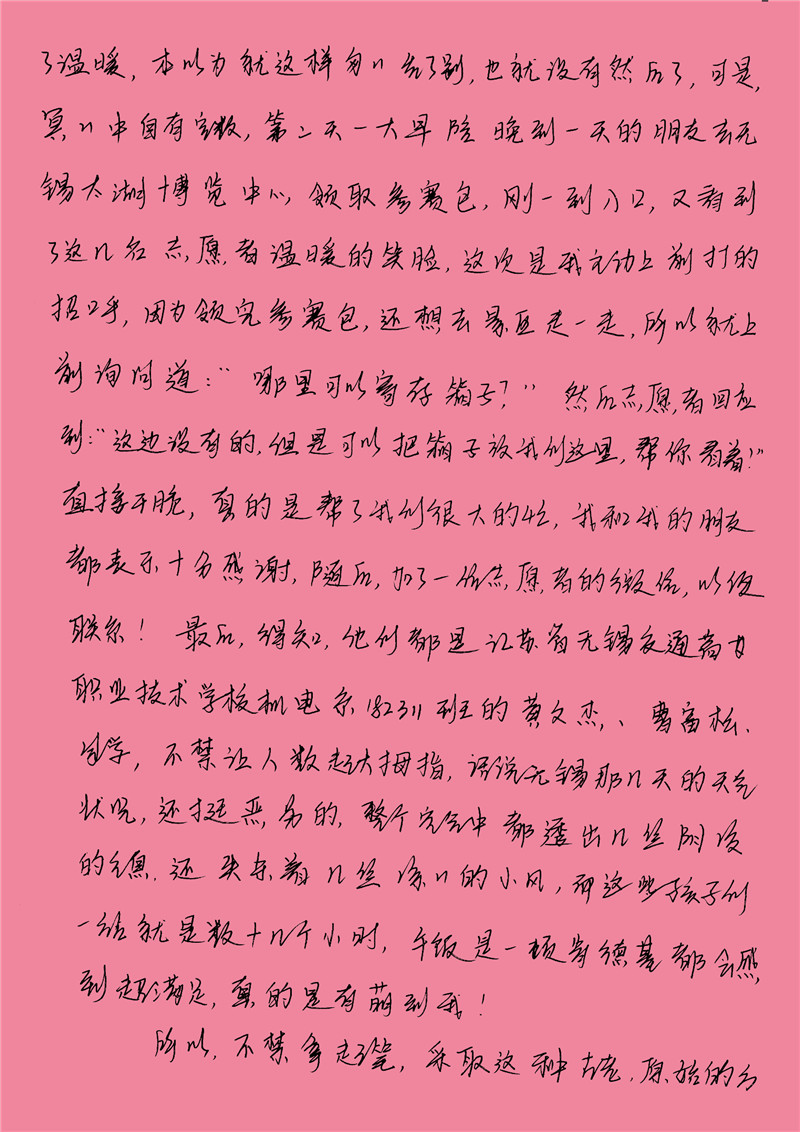 了温暖，本以为就这样匆〃告了别，也就没有然后了，可是，
冥〃中自有定数，第二天一大早陪晚到一天的朋友去无
锡太湖博览中心领取参赛包，刚一到入口，又看到
了这几名志愿者温暖的笑脸，这次是我主动上前打的
招呼，因为领完参赛包，还想去景区走一走，所以就上
前询问道：“哪里可以寄存箱子？”然后志愿者回应
到：“这边没有的，但是可以把箱子放我们这里，帮你看着！”
直接干脆，真的是帮了我们很大的忙，我和我的朋友
都表示十分感谢，随后，加了一位志愿者的微信，以便
联系！最后，得知，他们都是江苏省无锡交通高等
职业技术学校机电系182311班的黄文杰、曹富松、
同学，不禁让人数起大拇指，话说无锡那几天的天气
状况，还挺恶劣的，整个空气中都透出几丝阴冷
的气息，还夹杂着几丝凉〃的小风，而这些孩子们
一站就是数十几个小时，午饭是一顿肯德基都会感
到超满足，真的是有萌到我！
所以，不禁拿起笔，采取这种古老、原始的方